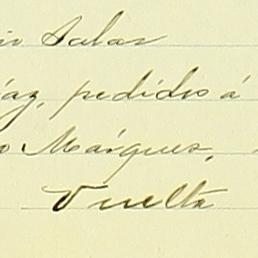 Salas
az, pedidos á
o Márquez,
Vuelta